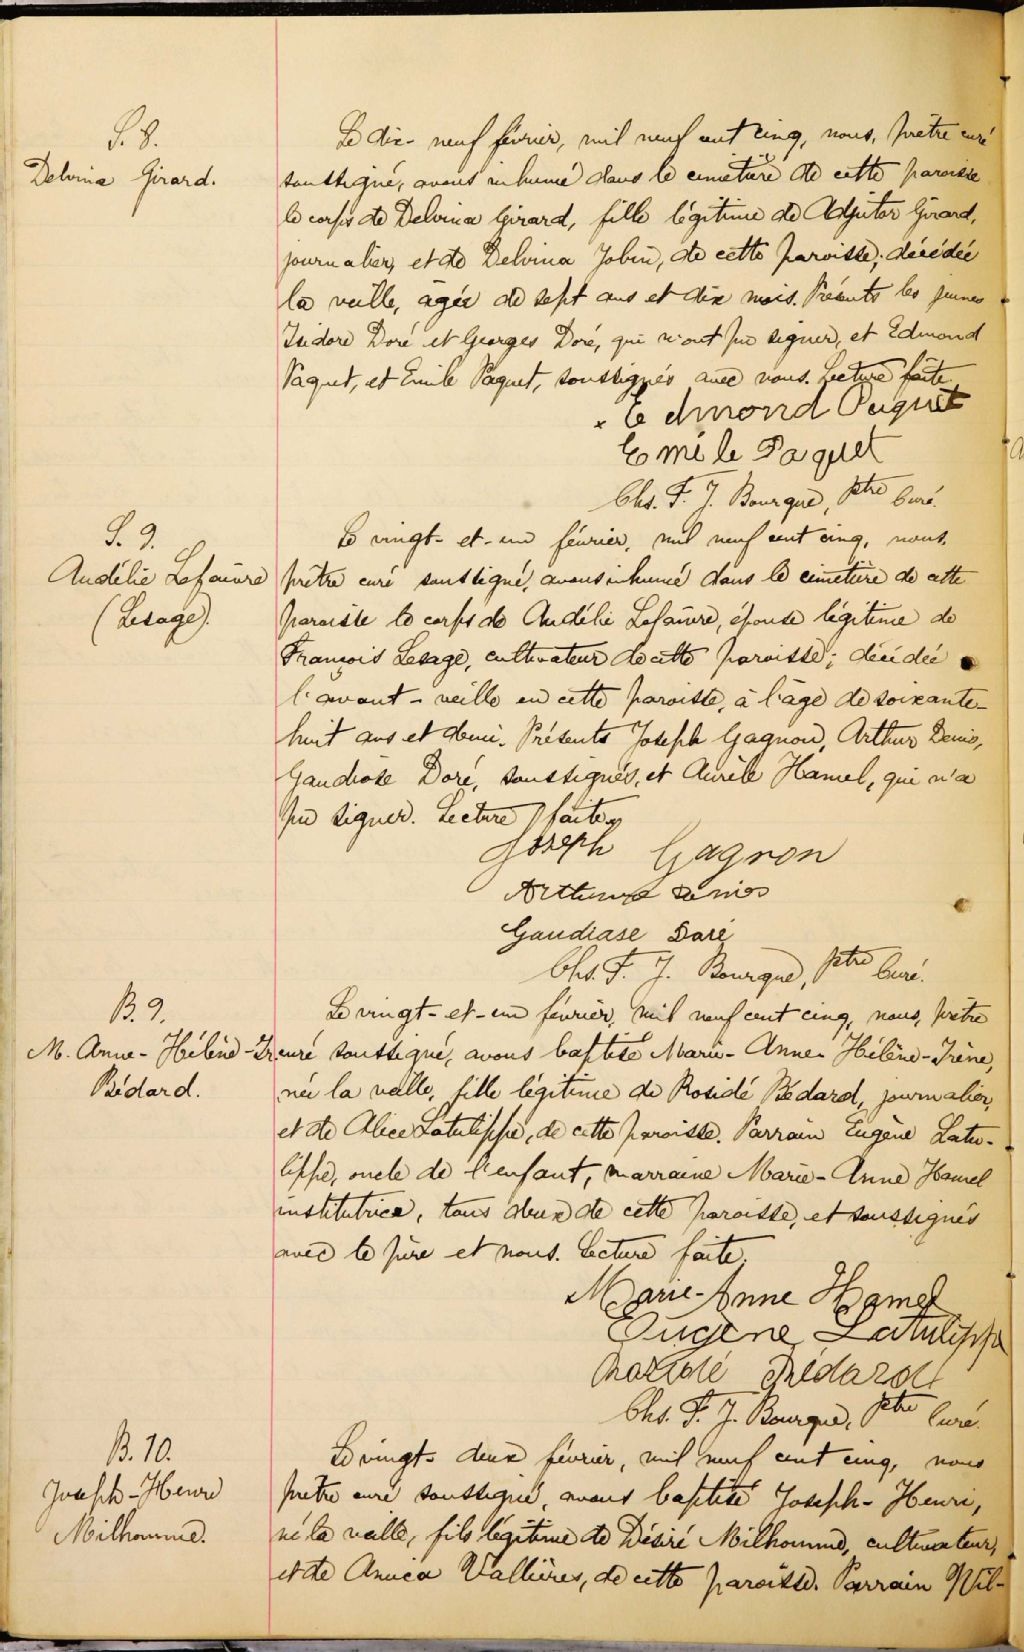 S. 8.
Delvina Girard.
Le dix-neuf février, mil neuf cent cinq, nous, prêtre curé
soussigné, avons inhumé dans le cimetière de cette paroisse
le corps de Delvina Girard, fille légitime de Adjutor Girard,
journalier, et de Delvina Jobin, de cette paroisse; décédée
la veille, âgée de sept ans et dix mois. Présents les jeunes
Isidore Doré et Georges Doré, qui n'ont pu signer, et Edmond
Paquet, et Emile Paquet, soussignés avec nous. Lecture faite.
x Edmond Paquet
Emile Paquet
Chs. F. J. Bourque, ptre Curé.
S. 9.
Audélie Lefaivre
(Lesage).
Le vingt-et-un février, mil neuf cent cinq, nous,
prêtre curé soussigné, avons inhumé dans le cimetière de cette
paroisse le corps de Audélie Lefaivre, épouse légitime de
François Lesage, cultivateur de cette paroisse; décédée
l'avant-veille en cette paroisse, à l'âge de soixante-
huit ans et demi. Présents Joseph Gagnon, Arthur Denis,
Gaudiose Doré, soussignés, et Aurèle Hamel, qui n'a
pu signer. Lecture faite.
Joseph Gagnon
Arthure Denis
Gaudiase Doré
Chs. F. J. Bourque, ptre Curé.
B. 9.
M. Anne-Hélène-Ir.
Bédard.
Le vingt-et-un février, mil neuf cent cinq, nous, prêtre
curé soussigné, avons baptisé Marie-Anne-Hélène-Irène,
née la veille, fille légitime de Rosidé Bédard, journalier,
et de Alice Latulippe, de cette paroisse. Parrain Eugène Latu-
lippe, oncle de l'enfant, marraine Marie-Anne Hamel
institutrice, tous deux de cette paroisse, et soussignés
avec le père et nous. Lecture faite.
Marie-Anne Hamel
Eugène Latulippe
Rozidé Bédard
Chs. F. J. Bourque, ptre Curé.
B. 10.
Joseph-Henri
Milhomme.
Le vingt-deux février, mil neuf cent cinq, nous
prêtre curé soussigné, avons baptisé Joseph-Henri,
né la veille, fils légitime de Désiré Milhomme, cultivateur,
et de Amica Vallières, de cette paroisse. Parrain Wil-